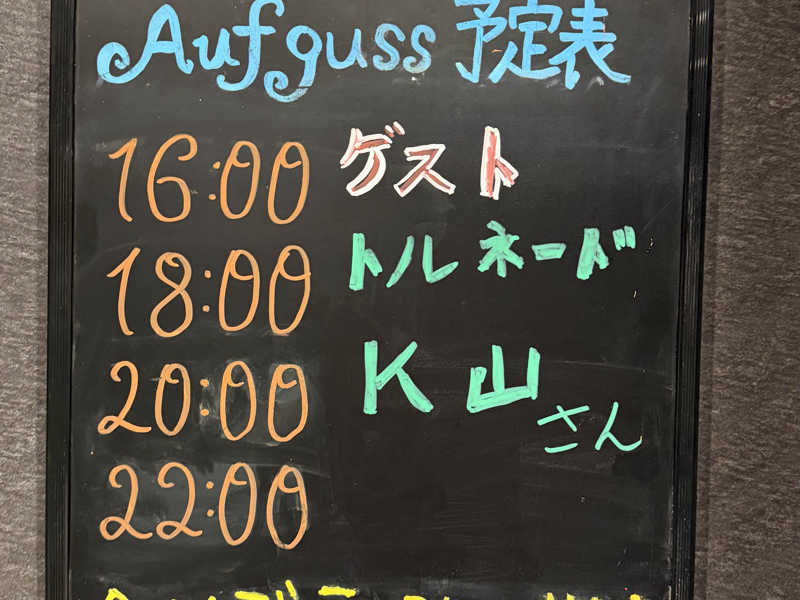 Aufguss 予定表
16:00 ゲスト
18:00 トルネード
20:00 K山さん
22:00